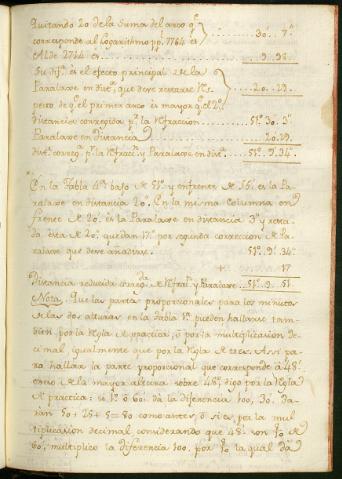 Quitando 20 de la Suma del arco q.e
corresponde al Logarithmo pp.l 7764 es
Al de 2744 es
30'. 7"
9. 38
Su dif.a es el efecto principal de la
Paralaxe en dist.a, que deve restarse
pecto de q.e el primer arco es mayor q.e el 2.o
20. 29
distancia corregida p.r la Refraccion 51º. 30'. 3"
Paralaxe en distancia 20. 29
dist.a correg.a p.r la Refracc.n y Paralaxe en dist.a 51º. 9'. 34"
En la Tabla 4.a bajo de 51º y enfrente de 35' es la Pa-
ralaxe en distancia 20". En la misma Columna en-
frente de 20' es la Paralaxe en distancia 3" y resta-
da esta de 20" quedan 17" por segunda correccion de Pa-
ralaxe que deve añadirse 51º. 9'. 34"
+ 17
Distancia reducida correg.da de Refracc.n y Paralaxe 51º. 9'. 51
Nota. Que las partes proporcionales para los minutos
de las dos alturas en la tabla 1.a pueden hallarse tam-
bien por la Regla de practica, ó por la multiplicacion de-
cimal igualmente que por la Regla de tres. Assi pa-
ra hallar la parte proporcional que corresponde á 48'
exceso de la mayor altura sobre 48º, digo por la Regla
de practica: si 1º ó 60' dá la diferencia 100, 30' da-
rán 50 + 25 + 5 = 80 como antes, ó si es por la mul-
tiplicacion decimal considerando que 48' son 8/10 de
60', multiplico la diferencia 100, por 8/10 la qual dá